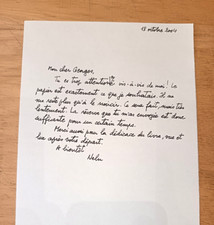 13 octobre 2021
Mon cher Georges,
Tu es trop attentionné vis-à-vis de moi ! Le
papier est exactement ce que je souhaitais. Il ne
me reste plus qu'à le noircir. Ce sera fait, mais très
lentement. La réserve que tu m'as envoyée est donc
suffisante pour un certain temps.
Merci aussi pour la dédicace du livre, vue et
lue après votre départ.
A bientôt